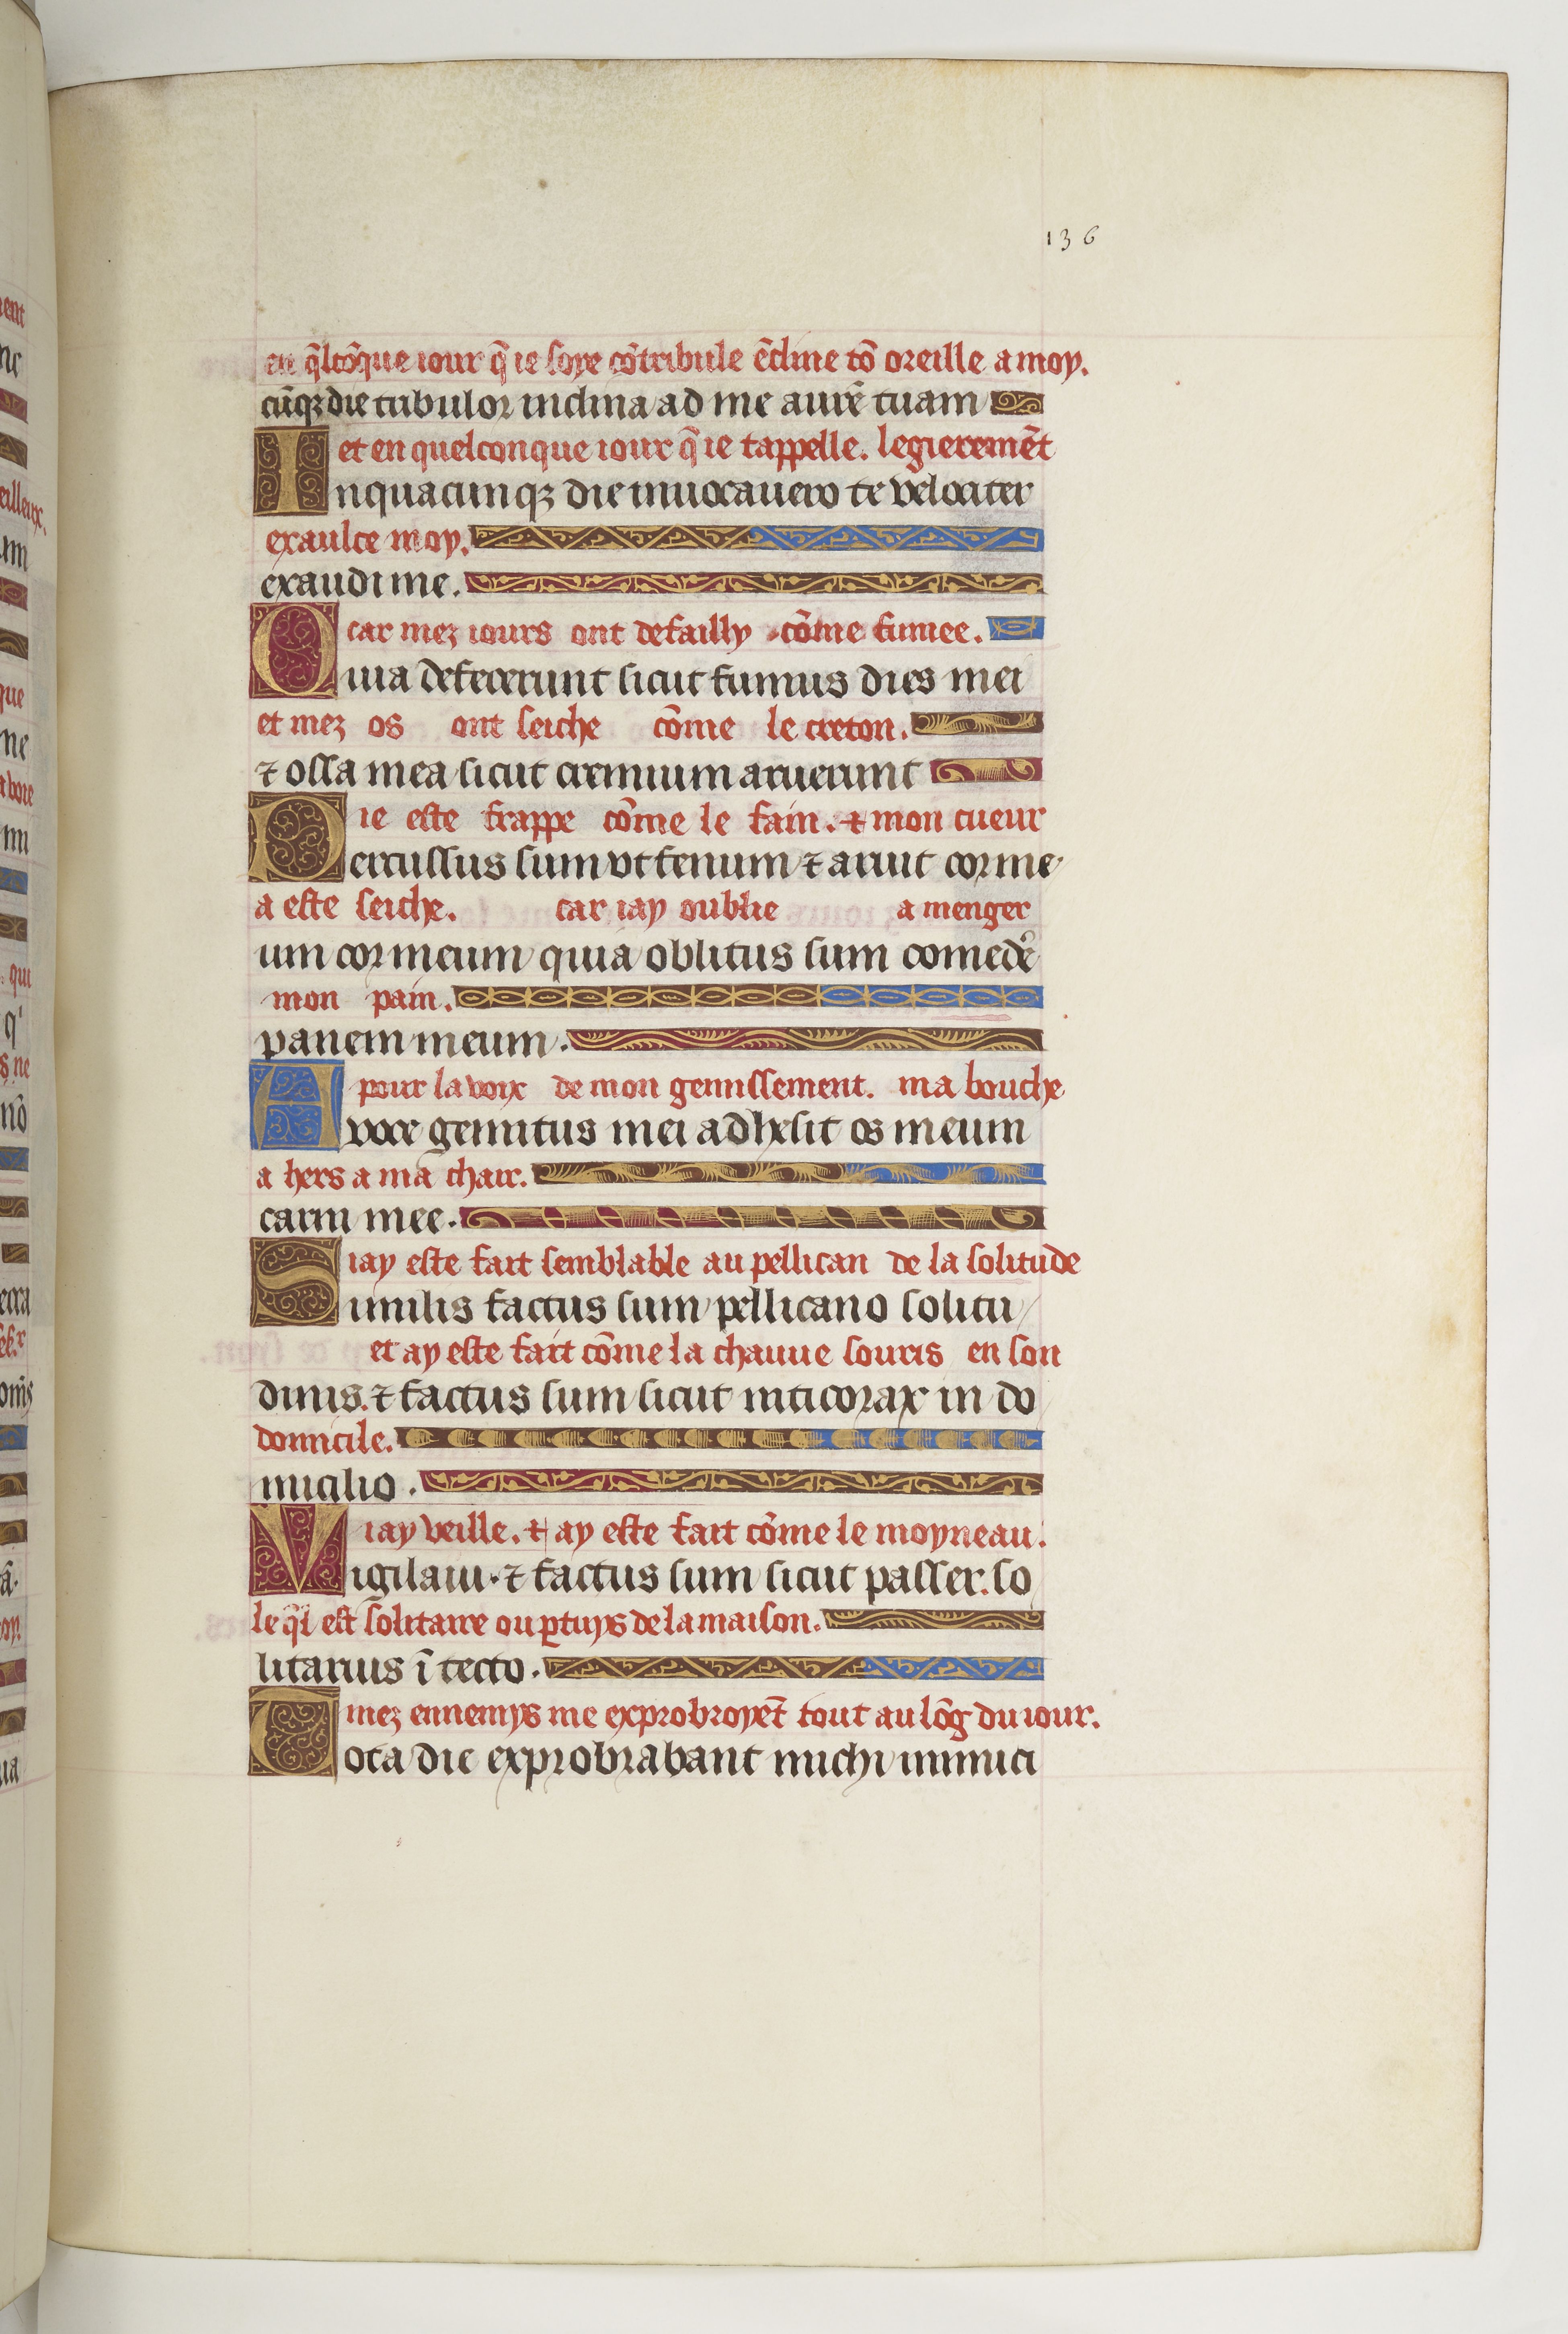 136
en q̃lcõque iour q̃ ie soye cõtribule ẽcline tõ oreille a moy.
cũqꝫ die tribulor inclina ad me aurẽ tuam
et en quelconque iour q̃ ie tappelle. legieremẽt
Inquacunqꝫ die inuocauero te velociter
exaulce moy.
exaudi me.
car mez iours ont defailly cõme fumee.
Quia defecerunt sicut fumus dies mei
et mez os ont seiche cõme le creton.
⁊ ossa mea sicut cremium aruerunt
ie este frappe cõme le fain. ⁊ mon cueur
Percussus sum vt fenum ⁊ aruit cor me
a este seiche. car iay oublie a menger
um cor meum quia oblitus sum comedẽ
mon pain.
panem meum.
pour la voix de mon gemissement. ma bouche
A voce gemitus mei adhesit os meum
a hers a ma chair.
carni mee.
iay este fait semblable au pellican de la solitude
Similis factus sum pellicano solitu
et ay este fait cõme la chauue souris en son
dinis. ⁊ factus sum sicut niticorax in do
domicile.
micilio.
iay veille. ⁊ ay este fait cõme le moyneau.
Vigilaui. ⁊ factus sum sicut passer. so
le q̃l est solitaire ou ꝑtuys de la maison.
litarius ĩ tecto.
mez ennemys me exprobroyẽt tout au lõg du iour.
Tota die exprobrabant michi inimici